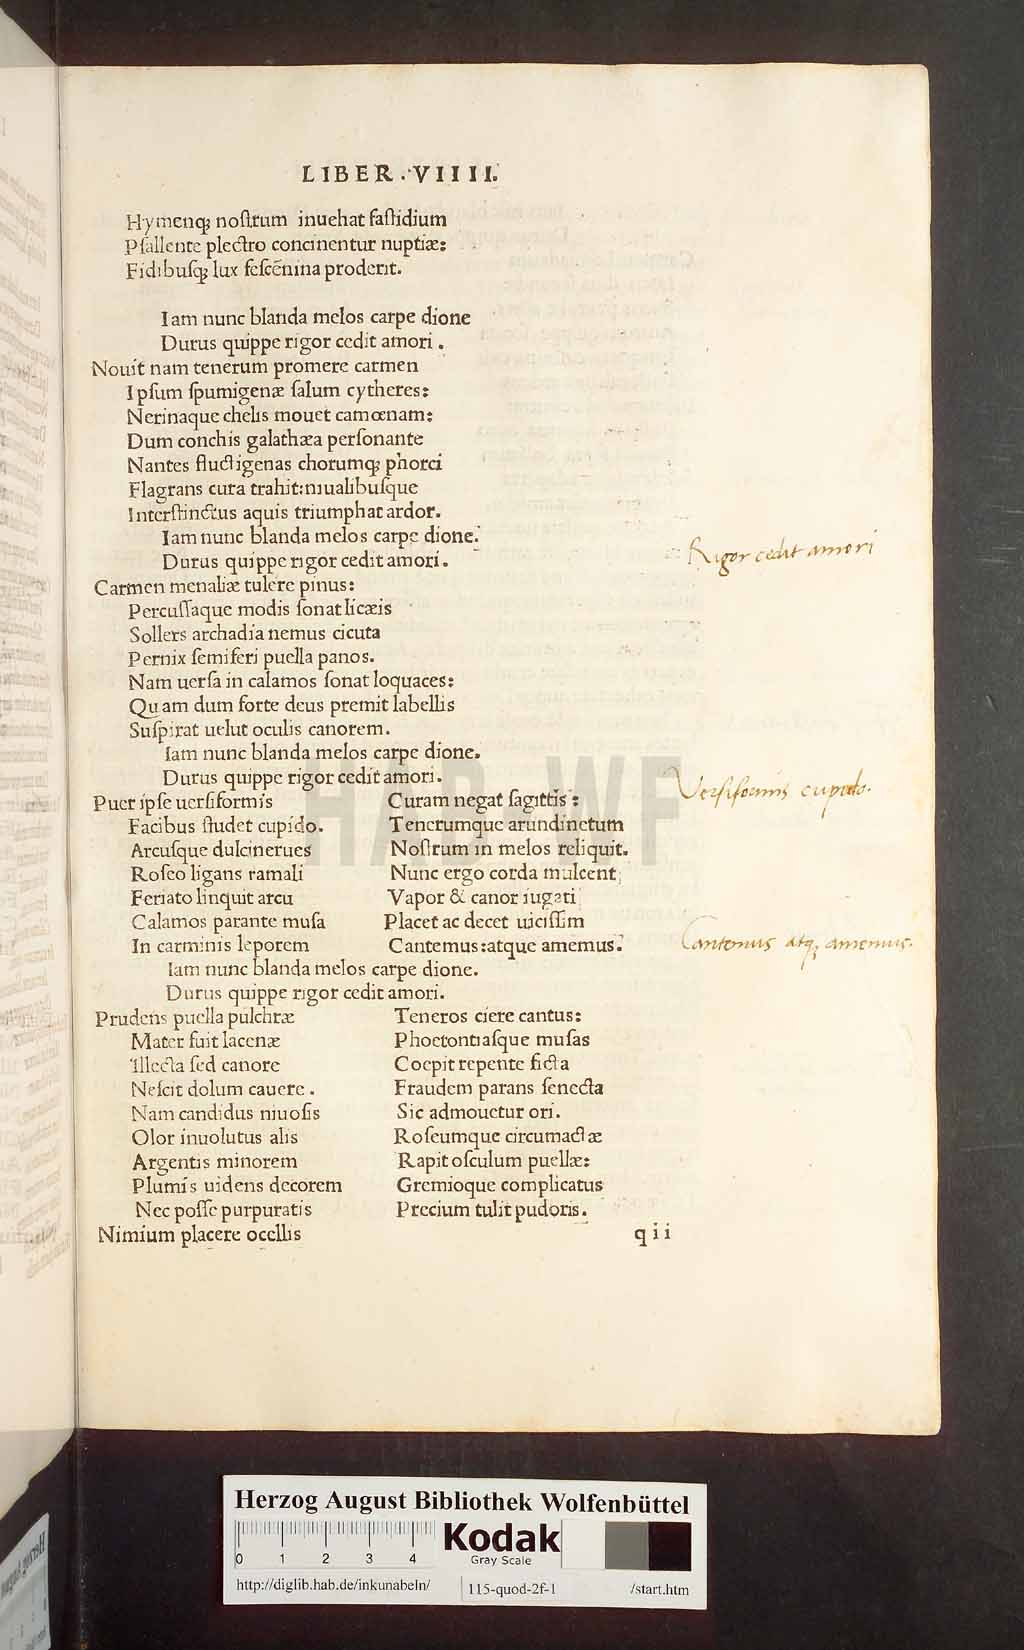 LIBER.VIIII.
Hymenq; noſtrum inuehat faſtidium
Pſallente plectro concinentur nuptiæ:
Fidibuſq; lux feſcēnina proderit.
Iam nunc blanda melos carpe dione
Durus quippe rigor cedit amori.
Nouit nam tenerum promere carmen
Ipſum ſpumigenæ ſalum cytheres:
Nerinaque chelis mouet camœnam:
Dum conchis galathæa perſonante
Nantes fluctigenas chorumq; phorci
Flagrans cura trahit:niualibuſque
Interſtinctus aquis triumphat ardor.
Iam nunc blanda melos carpe dione.
Durus quippe rigor cedit amori.
Rigor cedit amori
Carmen menaliæ tulere pinus:
Percuſſaque modis ſonat licæis
Sollers archadia nemus cicuta
Pernix ſemiferi puella panos.
Nam uerſa in calamos ſonat loquaces:
Quam dum forte deus premit labellis
Suſpirat uelut oculis canorem.
Iam nunc blanda melos carpe dione.
Durus quippe rigor cedit amori.
Puer ipſe uerſiformis
Facibus ſtudet cupido.
Arcuſque dulcinerues
Roſeo ligans ramali
Feriato linquit arcu
Calamos parante muſa
In carminis leporem
Curam negat ſagittis:
Tenerumque arundinetum
Noſtrum in melos reliquit.
Nunc ergo corda mulcent
Vapor & canor iugati
Placet ac decet uiciſſim
Cantemus:atque amemus.
Verſiformis cupido.
Cantemus atq; amemus.
Iam nunc blanda melos carpe dione.
Durus quippe rigor cedit amori.
Prudens puella pulchræ
Mater fuit lacenæ
Illecta ſed canore
Neſcit dolum cauere.
Nam candidus niuoſis
Olor inuolutus alis
Argentis minorem
Plumis uidens decorem
Nec poſſe purpuratis
Nimium placere ocellis
Teneros ciere cantus:
Phoetontiaſque muſas
Coepit repente ficta
Fraudem parans ſenecta
Sic admouetur ori.
Roſeumque circumactæ
Rapit oſculum puellæ:
Gremioque complicatus
Precium tulit pudoris.
q ii
HAB-WF
Herzog August Bibliothek Wolfenbüttel
0 1 2 3 4
Kodak
Gray Scale
http://diglib.hab.de/inkunabeln/ 115-quod-2f-1 /start.htm